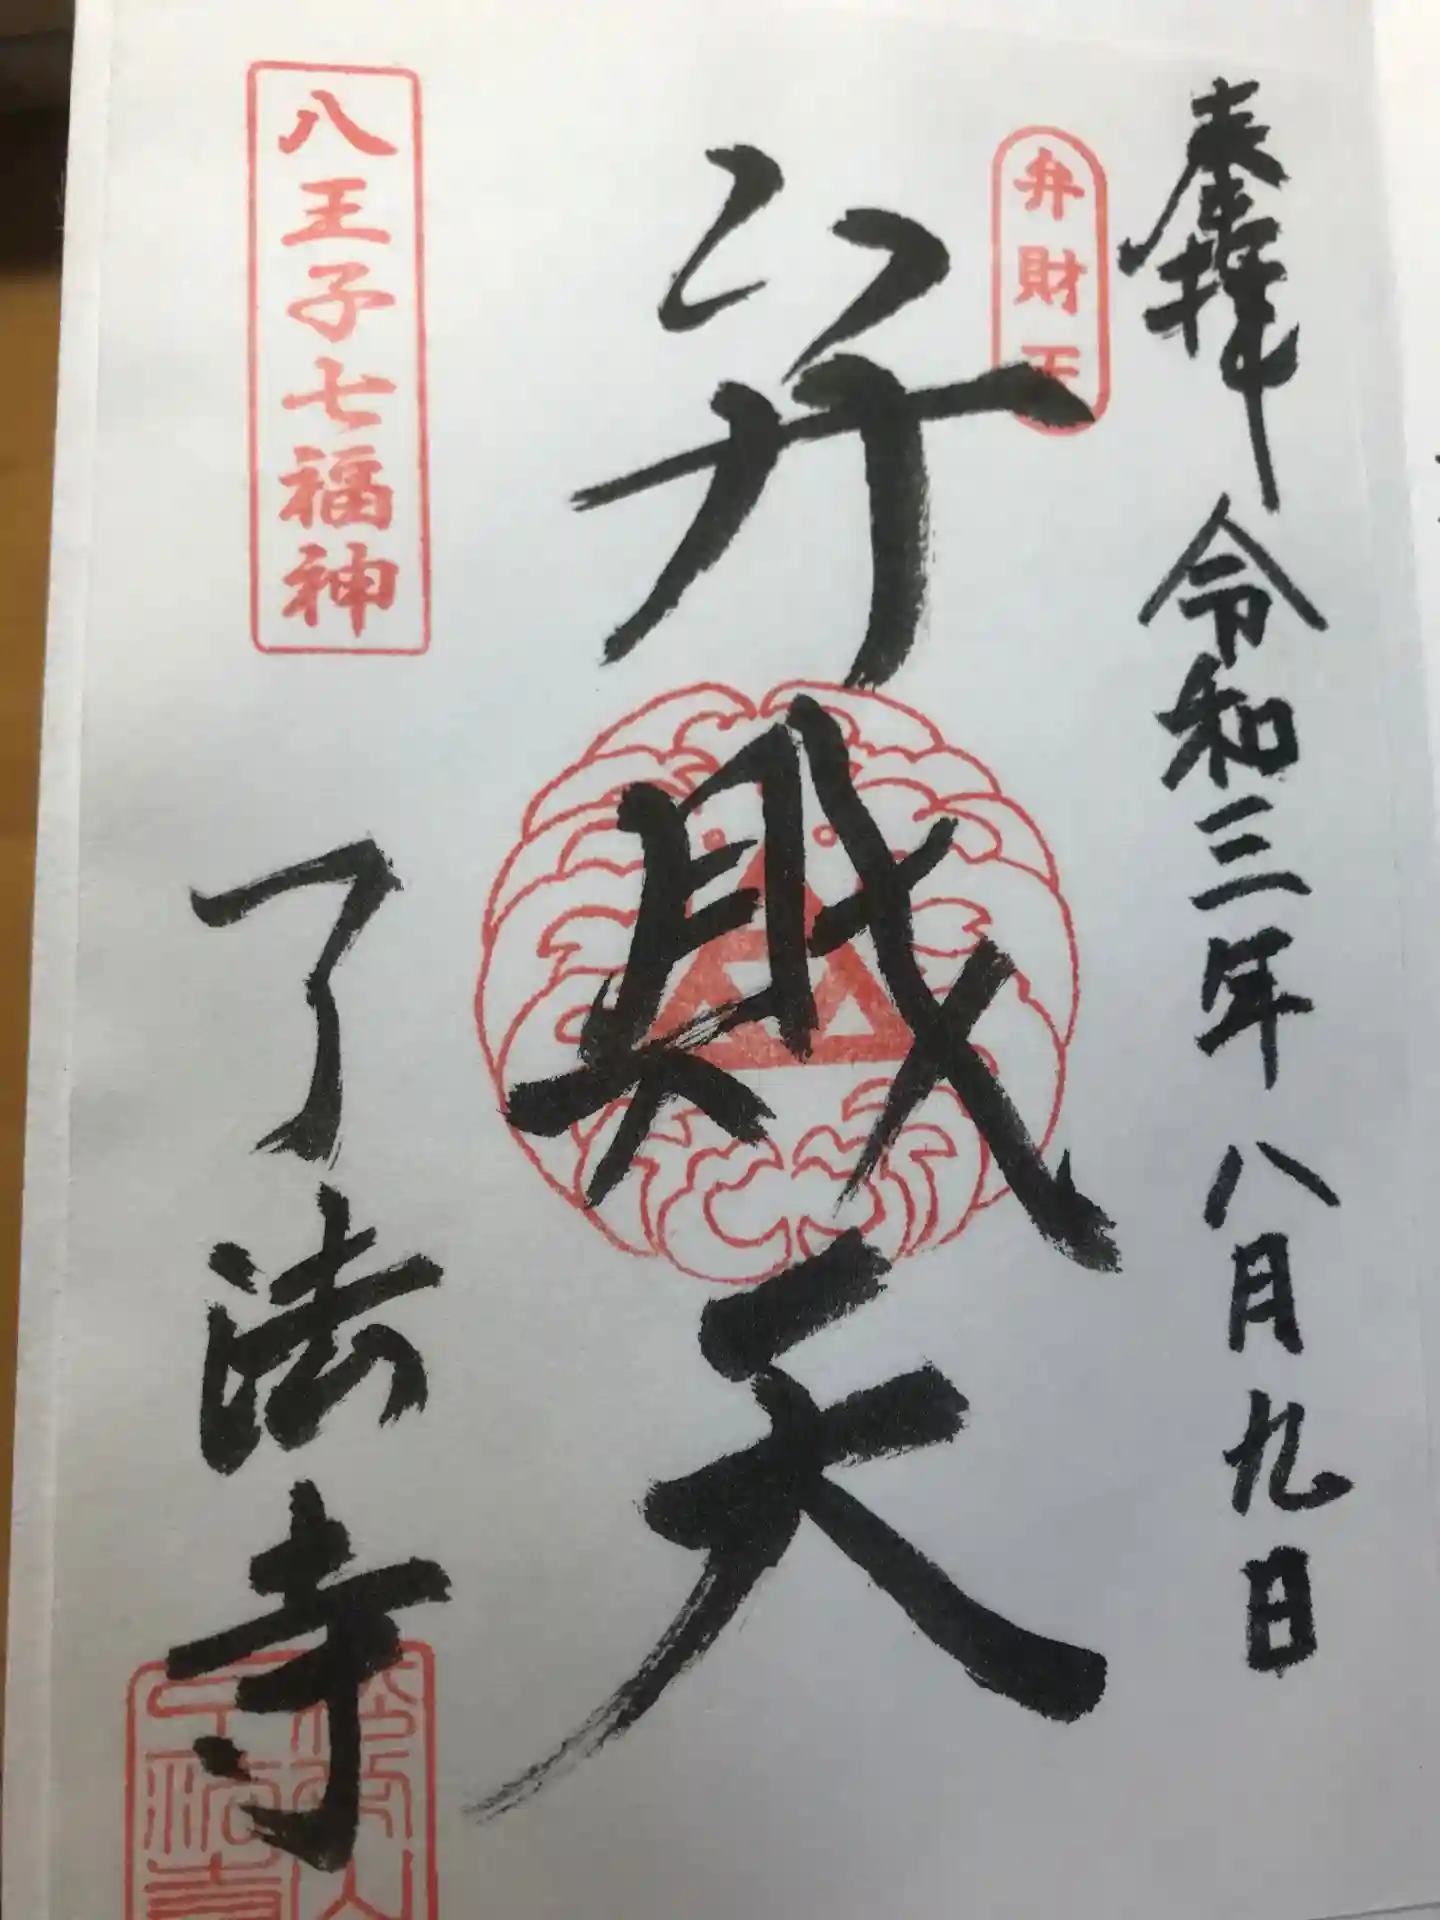 奉拝 令和三年 八月九日
弁財天
弁財天
八王子七福神
了法寺